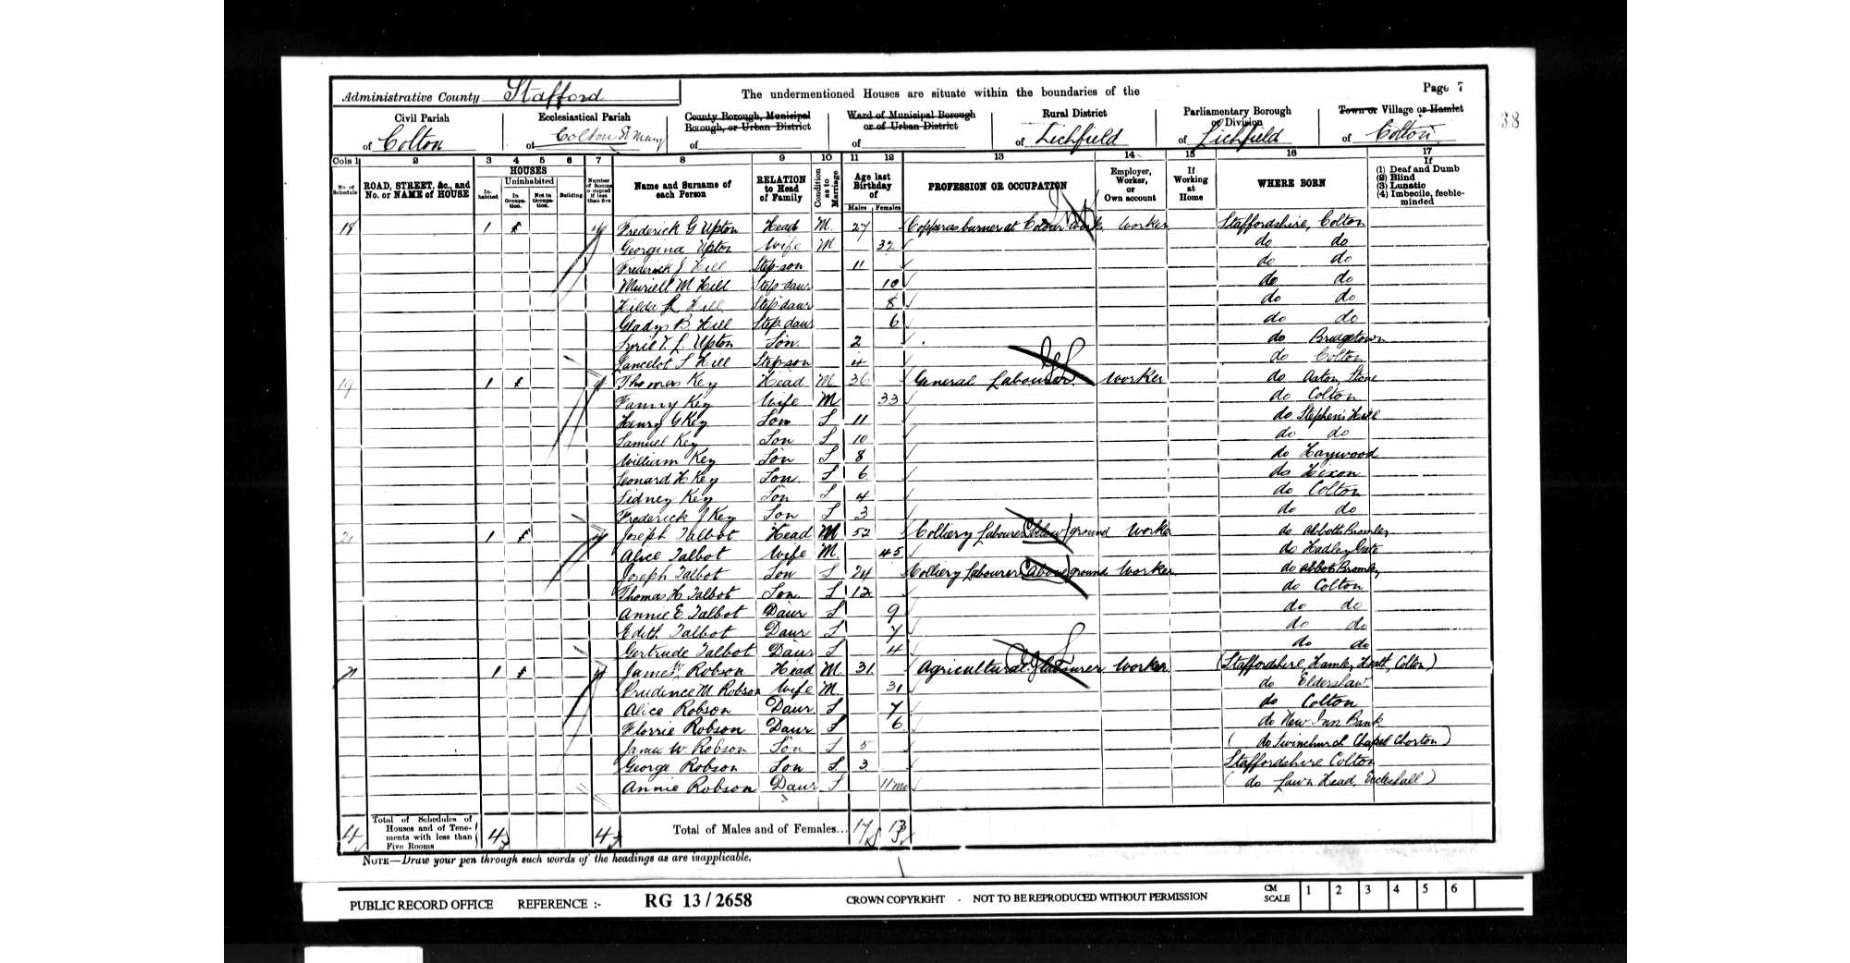 Page 7
Administrative County Stafford The undermentioned Houses are situate within the boundaries of the
Civil Parish Ecclesiastical Parish County Borough, Municipal Borough, or Urban District Ward of Municipal Borough or of Urban District Rural District Parliamentary Borough or Division Town or Village or Hamlet
of Colton of Colton St Mary of of of Lichfield of Lichfield of Colton
38
Cols 1 2 3 4 5 6 7 8 9 10 11 12 13 14 15 16 17
No. of Schedule ROAD, STREET, &c., and No. or NAME of HOUSE HOUSES Inhabited Uninhabited In Occupation. Not in Occupation. Building Number of Rooms occupied if less than five Name and Surname of each Person RELATION to Head of Family Condition as to Marriage Age last Birthday of Males Females PROFESSION OR OCCUPATION Employer, Worker, or Own account If Working at Home WHERE BORN If (1) Deaf and Dumb (2) Blind (3) Lunatic (4) Imbecile, feeble-minded
18 1 Frederick G Upton Head M 27 Copperas burner at Colour Work Worker Staffordshire, Colton
Georgina Upton Wife M 32 do do
Frederick J Hill Step-son 11 do do
Muriell M Hill Step-daur 10 do do
Hilda L Hill Step daur 8 do do
Gladys B. Hill Step daur 6 do do
Cyril T. L. Upton Son 2 do Bridgetown
Lancelot S Hill Step-son 4 do Colton
19 1 4 Thomas Key Head M 36 General Labourer Worker do Aston, Stone
Fanny Key Wife M 33 do Colton
Henry G Key Son S 11 do Stephens Hill
Samuel Key Son S 10 do do
William Key Son S 8 do Haywood
Leonard H Key Son S 6 do Hixon
Sidney Key Son S 4 do Colton
Frederick J Key Son S 3 do do
20 1 4 Joseph Talbot Head M 52 Colliery Labourer (below) ground Worker do Abbotts Bromley
Alice Talbot Wife M 45 do Hadley Gate
Joseph Talbot Son S 24 Colliery Labourer (above) ground Worker do Abbots Bromley
Thomas H Talbot Son S 12 do Colton
Annie E Talbot Daur S 9 do do
Edith Talbot Daur S 7 do do
Gertrude Talbot Daur S 4 do do
21 1 4 James Robson Head M 31 Agricultural Labourer Worker (Staffordshire, Colton)
Prudence M Robson Wife M 31 do
Alice Robson Daur S 7 do Colton
Florrie Robson Daur S 6 do New Inn Bank
James W Robson Son S 5 (do Swinchurch Chapel Chorton)
George Robson Son S 3 Staffordshire Colton
Annie Robson Daur S 11 mo (do Lawn Head, Eccleshall)
4 Total of Schedules of Houses and of Tenements with less than Five Rooms 4 4 Total of Males and of Females... 17 13
NOTE—Draw your pen through such words of the headings as are inapplicable.
PUBLIC RECORD OFFICE REFERENCE :- RG 13 / 2658 CROWN COPYRIGHT - NOT TO BE REPRODUCED WITHOUT PERMISSION CM SCALE 1 2 3 4 5 6